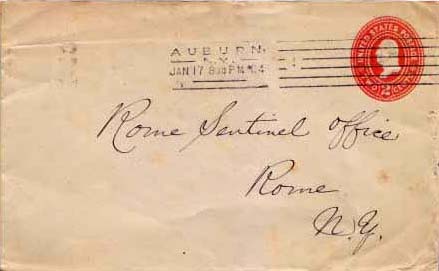 AUBURN,
N.Y.
JAN 17 8 30 PM '04
1
UNITED STATES POSTAGE
2
Rome Sentinel Office
Rome
N.Y.